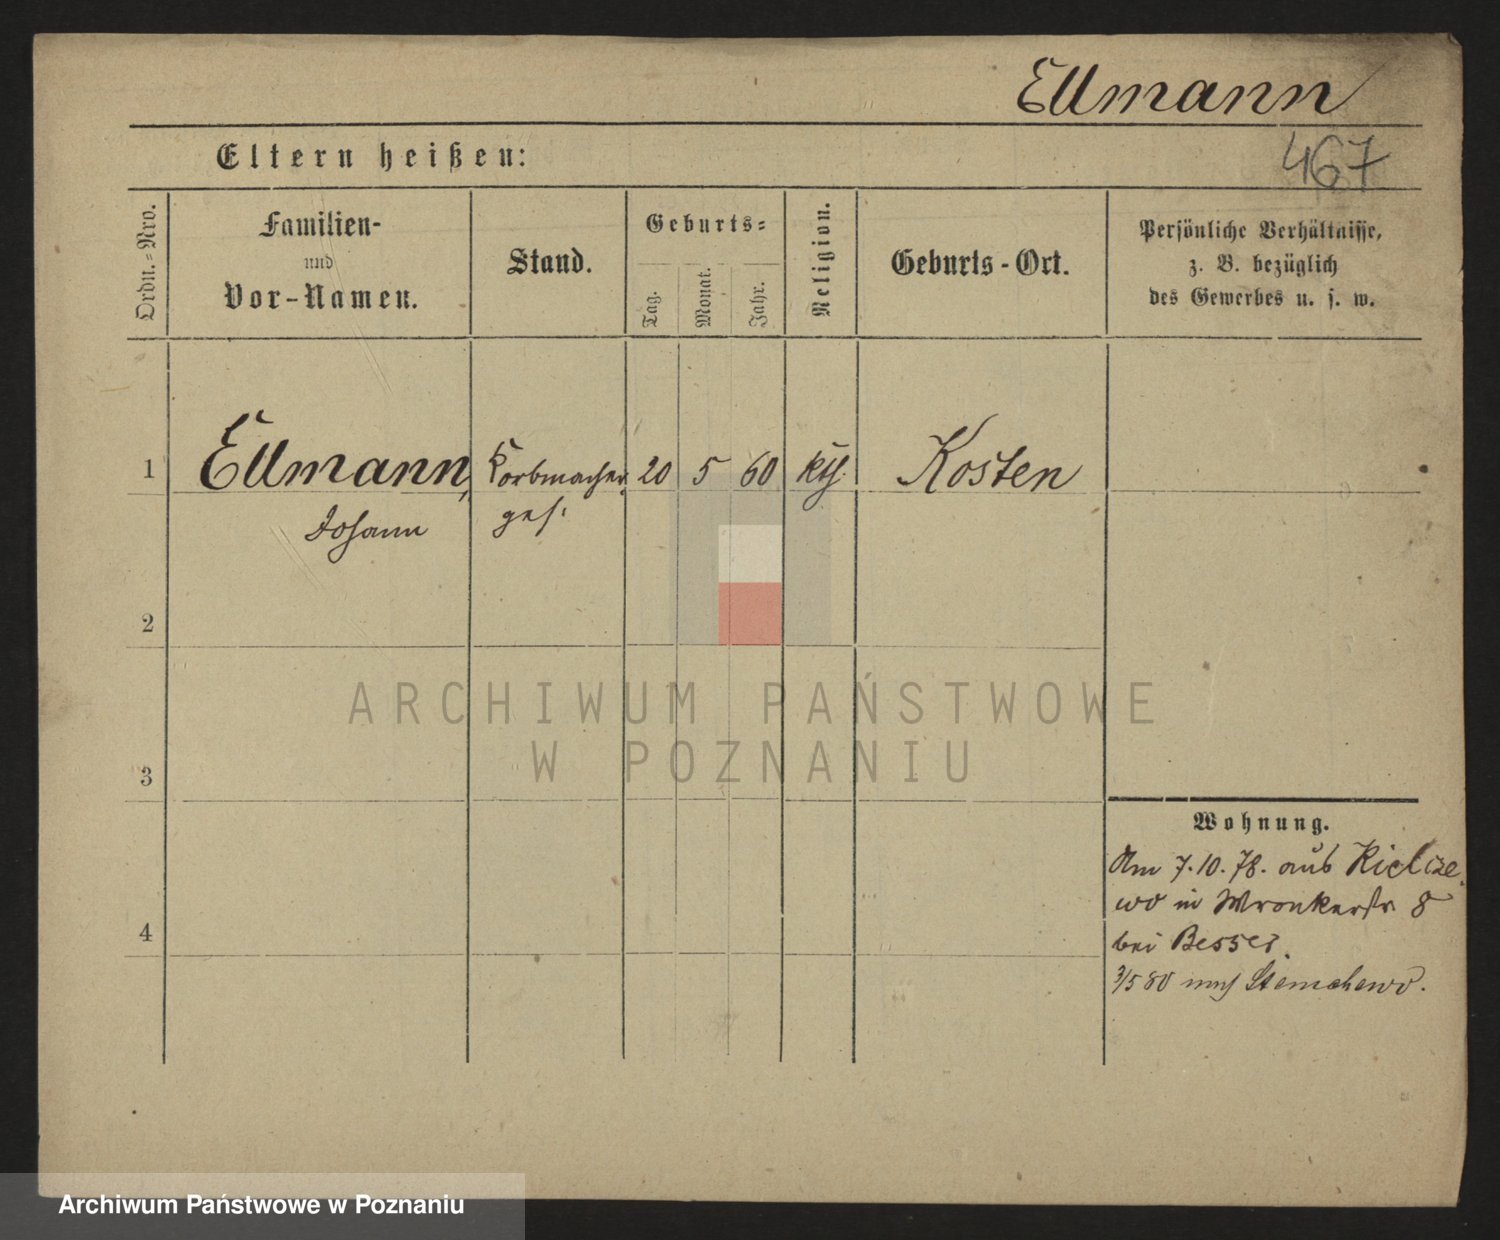 Ellmann
467
Eltern heißen:
Ordn.=Nro.
Familien-
und
Vor-Namen.
Stand.
Geburts=
Tag.
Monat.
Jahr.
Religion.
Geburts-Ort.
Persönliche Verhältnisse,
z. B. bezüglich
des Gewerbes u. s. w.
1
Ellmann, Korbmacher 20 5 60 kth. Kosten
Johann ges.
2
3
4
ARCHIWUM PAŃSTWOWE
W POZNANIU
Wohnung.
Am 7.10.78. aus Kielcze
wo in Wronkerstr 8
bei Besser.
3/5 80 nach
Archiwum Państwowe w Poznaniu